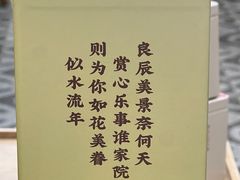 良辰美景奈何天
赏心乐事谁家院
则为你如花美眷
似水流年